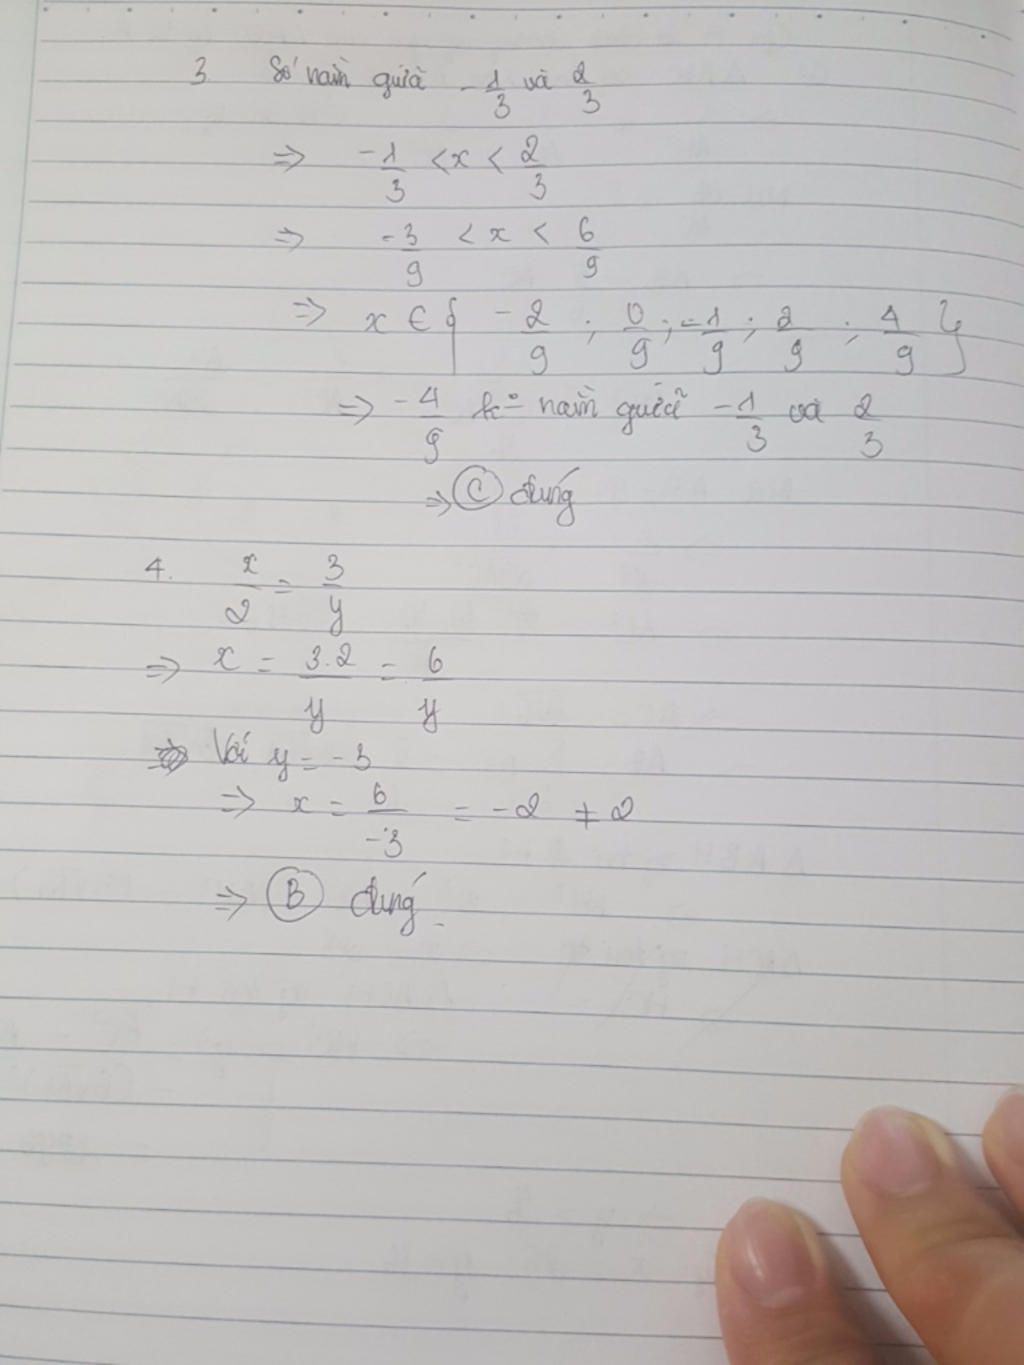 3. Số nằm giữa -1/3 và 2/3
=> -1/3 < x < 2/3
=> -3/9 < x < 6/9
=> x ∈ { -2/9 ; 0/9 ; -1/9 ; 2/9 ; 4/9 }
=> -4/9 k° nằm giữa -1/3 và 2/3
=> Ⓒ đúng
4. x/2 = 3/y
=> x = 3.2/y = 6/y
Với y = -3
=> x = 6/-3 = -2 ≠ 2
=> Ⓑ đúng.